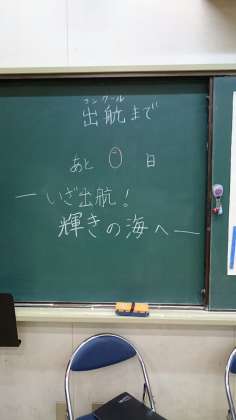 コンクール
出航まで
あと 0 日
ーいざ出航!
輝きの海へー